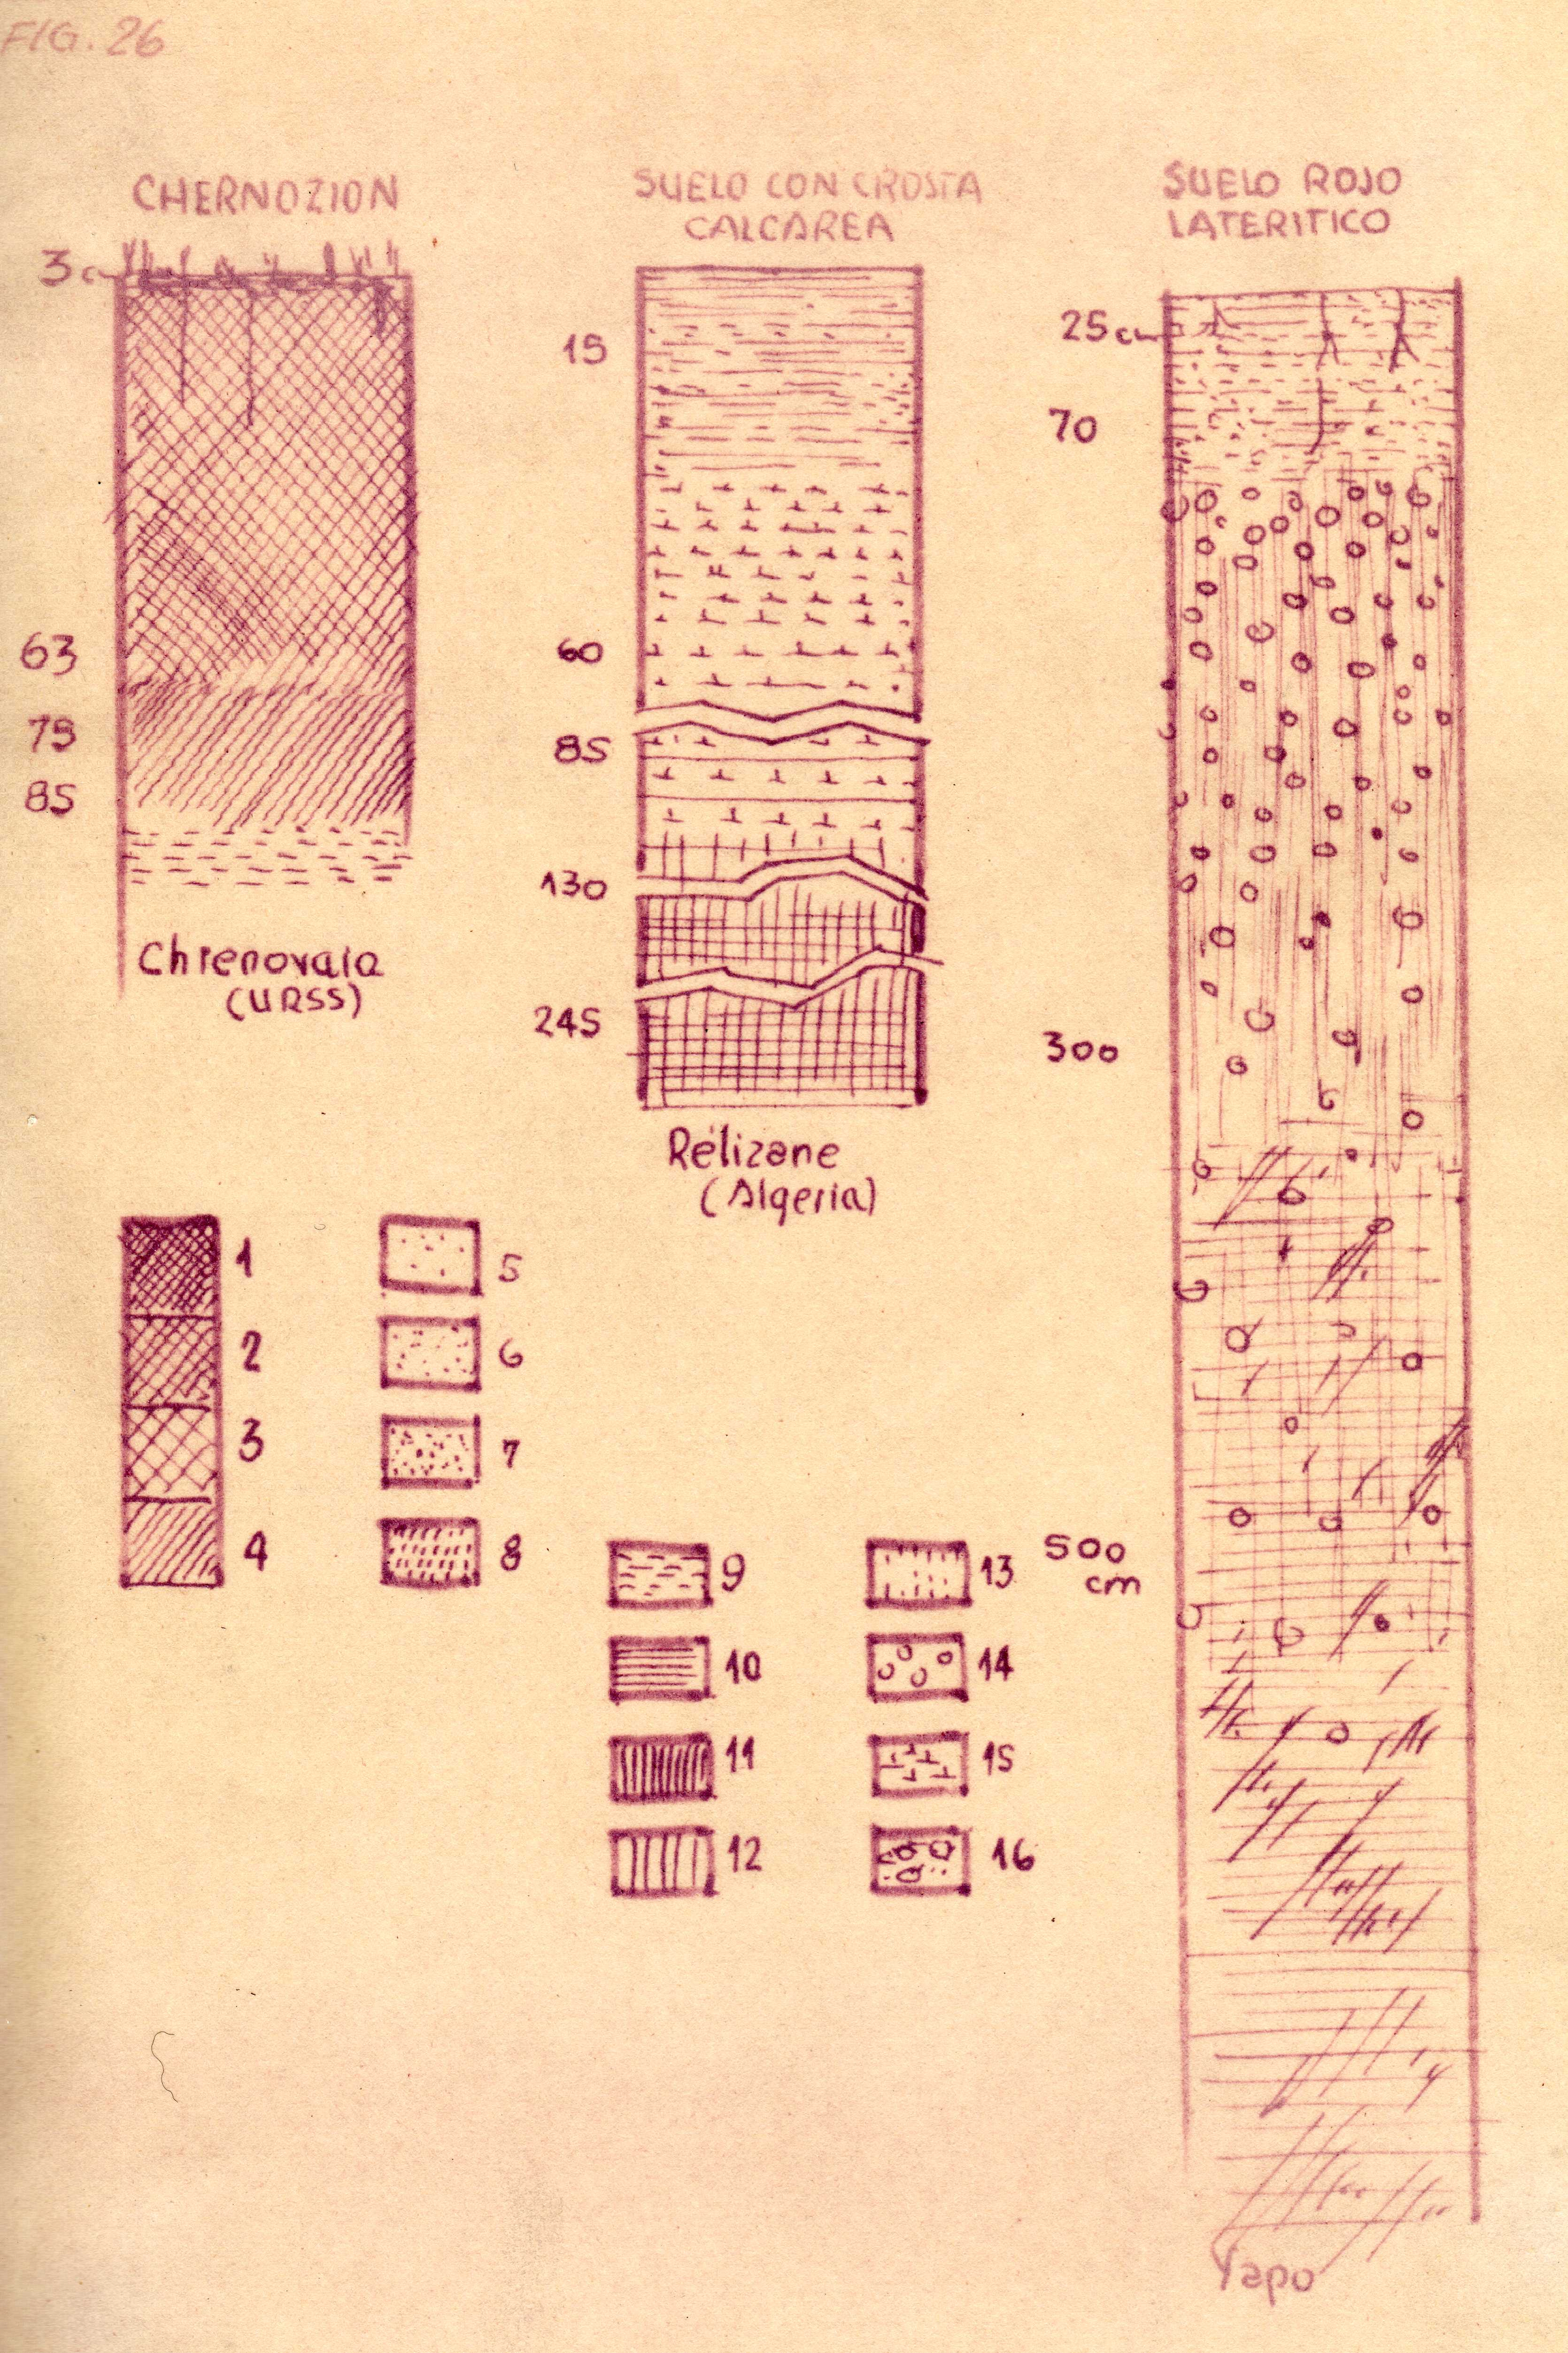 FIG. 26
CHERNOZION
3 cm
63
75
85
Chrenovaia
(URSS)
SUELO CON CROSTA
CALCAREA
15
60
85
130
245
Rélizane
(Algeria)
SUELO ROJO
LATERITICO
25 cm
70
300
500
cm
Yapo
1
2
3
4
5
6
7
8
9
10
11
12
13
14
15
16